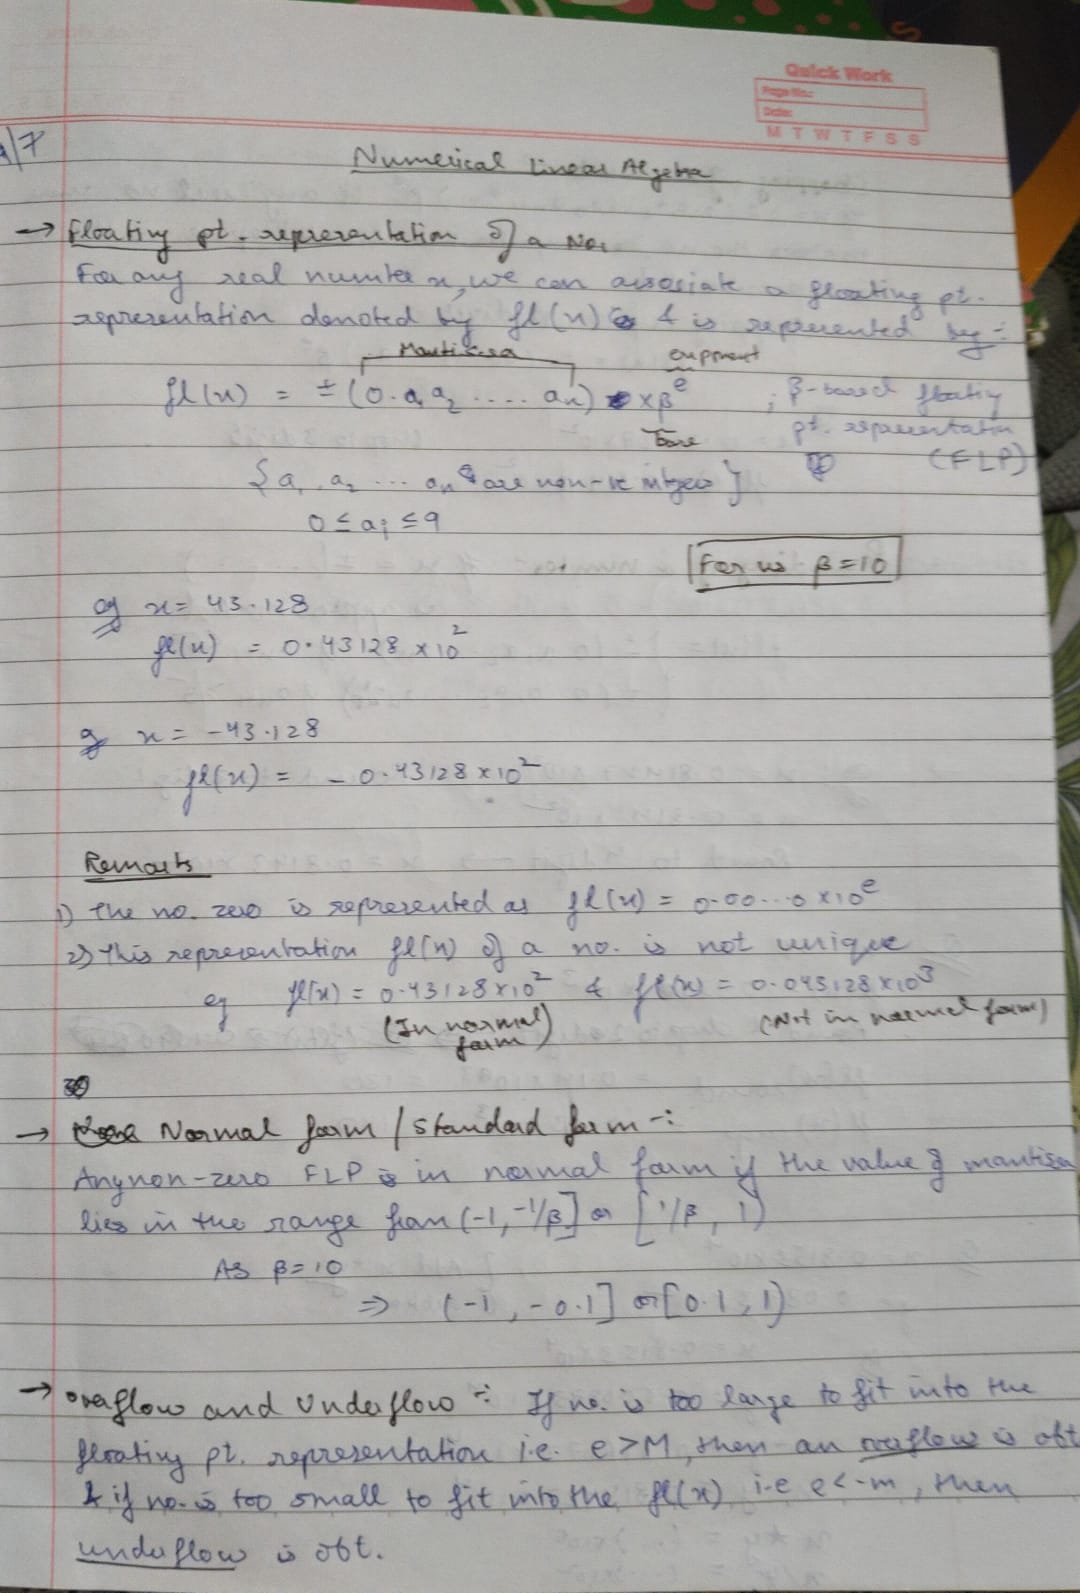 Quick Work
Page No.:
Date:
M T W T F S S
/7
Numerical Linear Algebra
→ Floating pt. representation of a No.
For any real number x, we can associate a floating pt.
representation denoted by fl(x) & is represented by :-
Mantissa exponent
fl(x) = ± (0.a₁a₂ .... aₙ) × βᵉ ; β-based floating
base pt. representation
(FLP)
{a₁, a₂ ... aₙ are non-ve integers}
0 ≤ aᵢ ≤ 9
For us β = 10
eg x = 43.128
fl(x) = 0.43128 × 10²
eg x = -43.128
fl(x) = - 0.43128 × 10²
Remarks
1) The no. zero is represented as fl(x) = 0.00...0 × 10ᵉ
2) This representation fl(x) of a no. is not unique
eg fl(x) = 0.43128 × 10² & fl(x) = 0.043128 × 10³
(In normal form) (Not in normal form)
→ Normal form / Standard form -:
Any non-zero FLP is in normal form if the value of mantissa
lies in the range from (-1, -1/β] or [1/β, 1)
As β = 10
⇒ (-1, -0.1] or [0.1, 1)
→ Overflow and Underflow :- If no. is too large to fit into the
floating pt. representation i.e. e > M, then an overflow is obt
& if no. is too small to fit into the fl(x) i.e e < -m, then
underflow is obt.